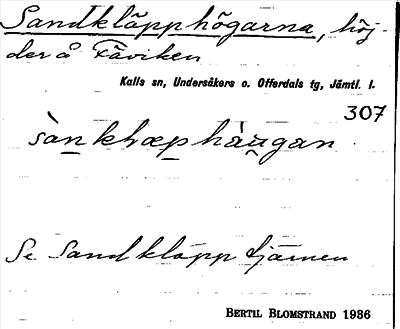 Sandkläpphögarna, höj-
der å Fäviken
Kalls sn, Undersåkers o. Offerdals tg, Jämtl. l.
307
sànkhæphàu̯gan.
Se Sandkläpptjärnen
BERTIL BLOMSTRAND 1936